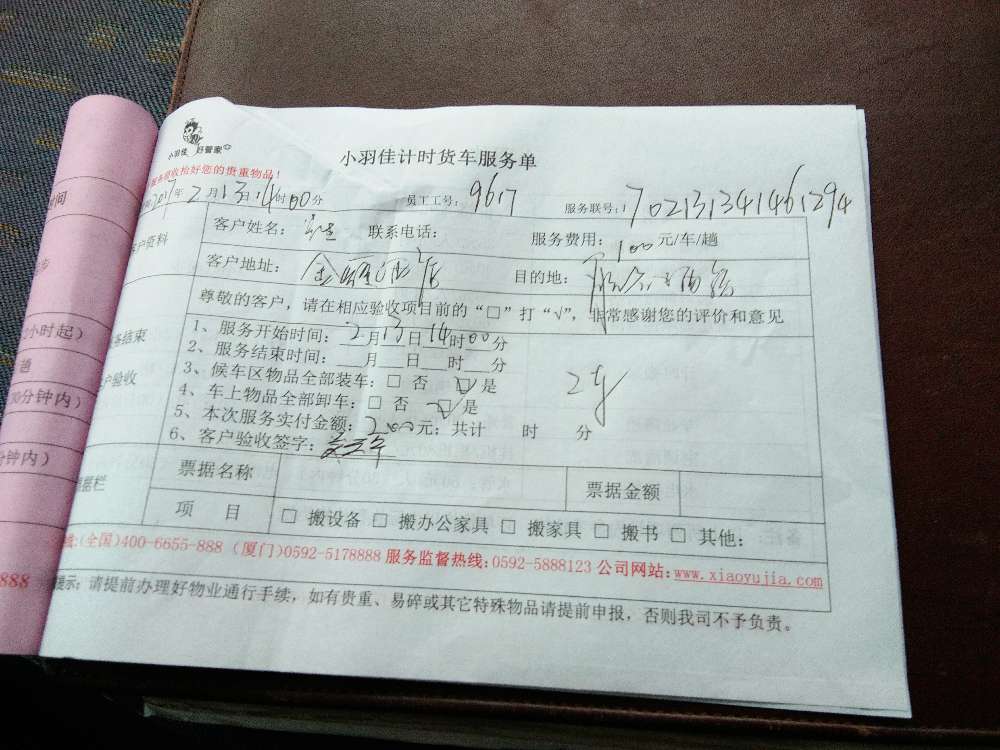 小羽佳 好管家
小羽佳计时货车服务单
收拾好您的贵重物品!
2017年2月13日14时00分 员工工号: 9617 服务联号: 702131341461294
客户资料
客户姓名: 联系电话: 服务费用: 100元/车/趟
客户地址: 目的地:
尊敬的客户,请在相应验收项目前的“□”打“√”,非常感谢您的评价和意见
1、服务开始时间: 2月13日14时00分
2、服务结束时间: 月 日 时 分
3、候车区物品全部装车: □ 否 ☑ 是
4、车上物品全部卸车: □ 否 ☑ 是
5、本次服务实付金额: 200元; 共计 时 分
2车
6、客户验收签字:
票据名称 票据金额
项 目 □ 搬设备 □ 搬办公家具 □ 搬家具 □ 搬书 □ 其他:
(全国)400-6655-888 (厦门)0592-5178888 服务监督热线:0592-5888123 公司网站:www.xiaoyujia.com
提示: 请提前办理好物业通行手续,如有贵重、易碎或其它特殊物品请提前申报,否则我司不予负责。
小时起)
趟
分钟内)
钟内)
888